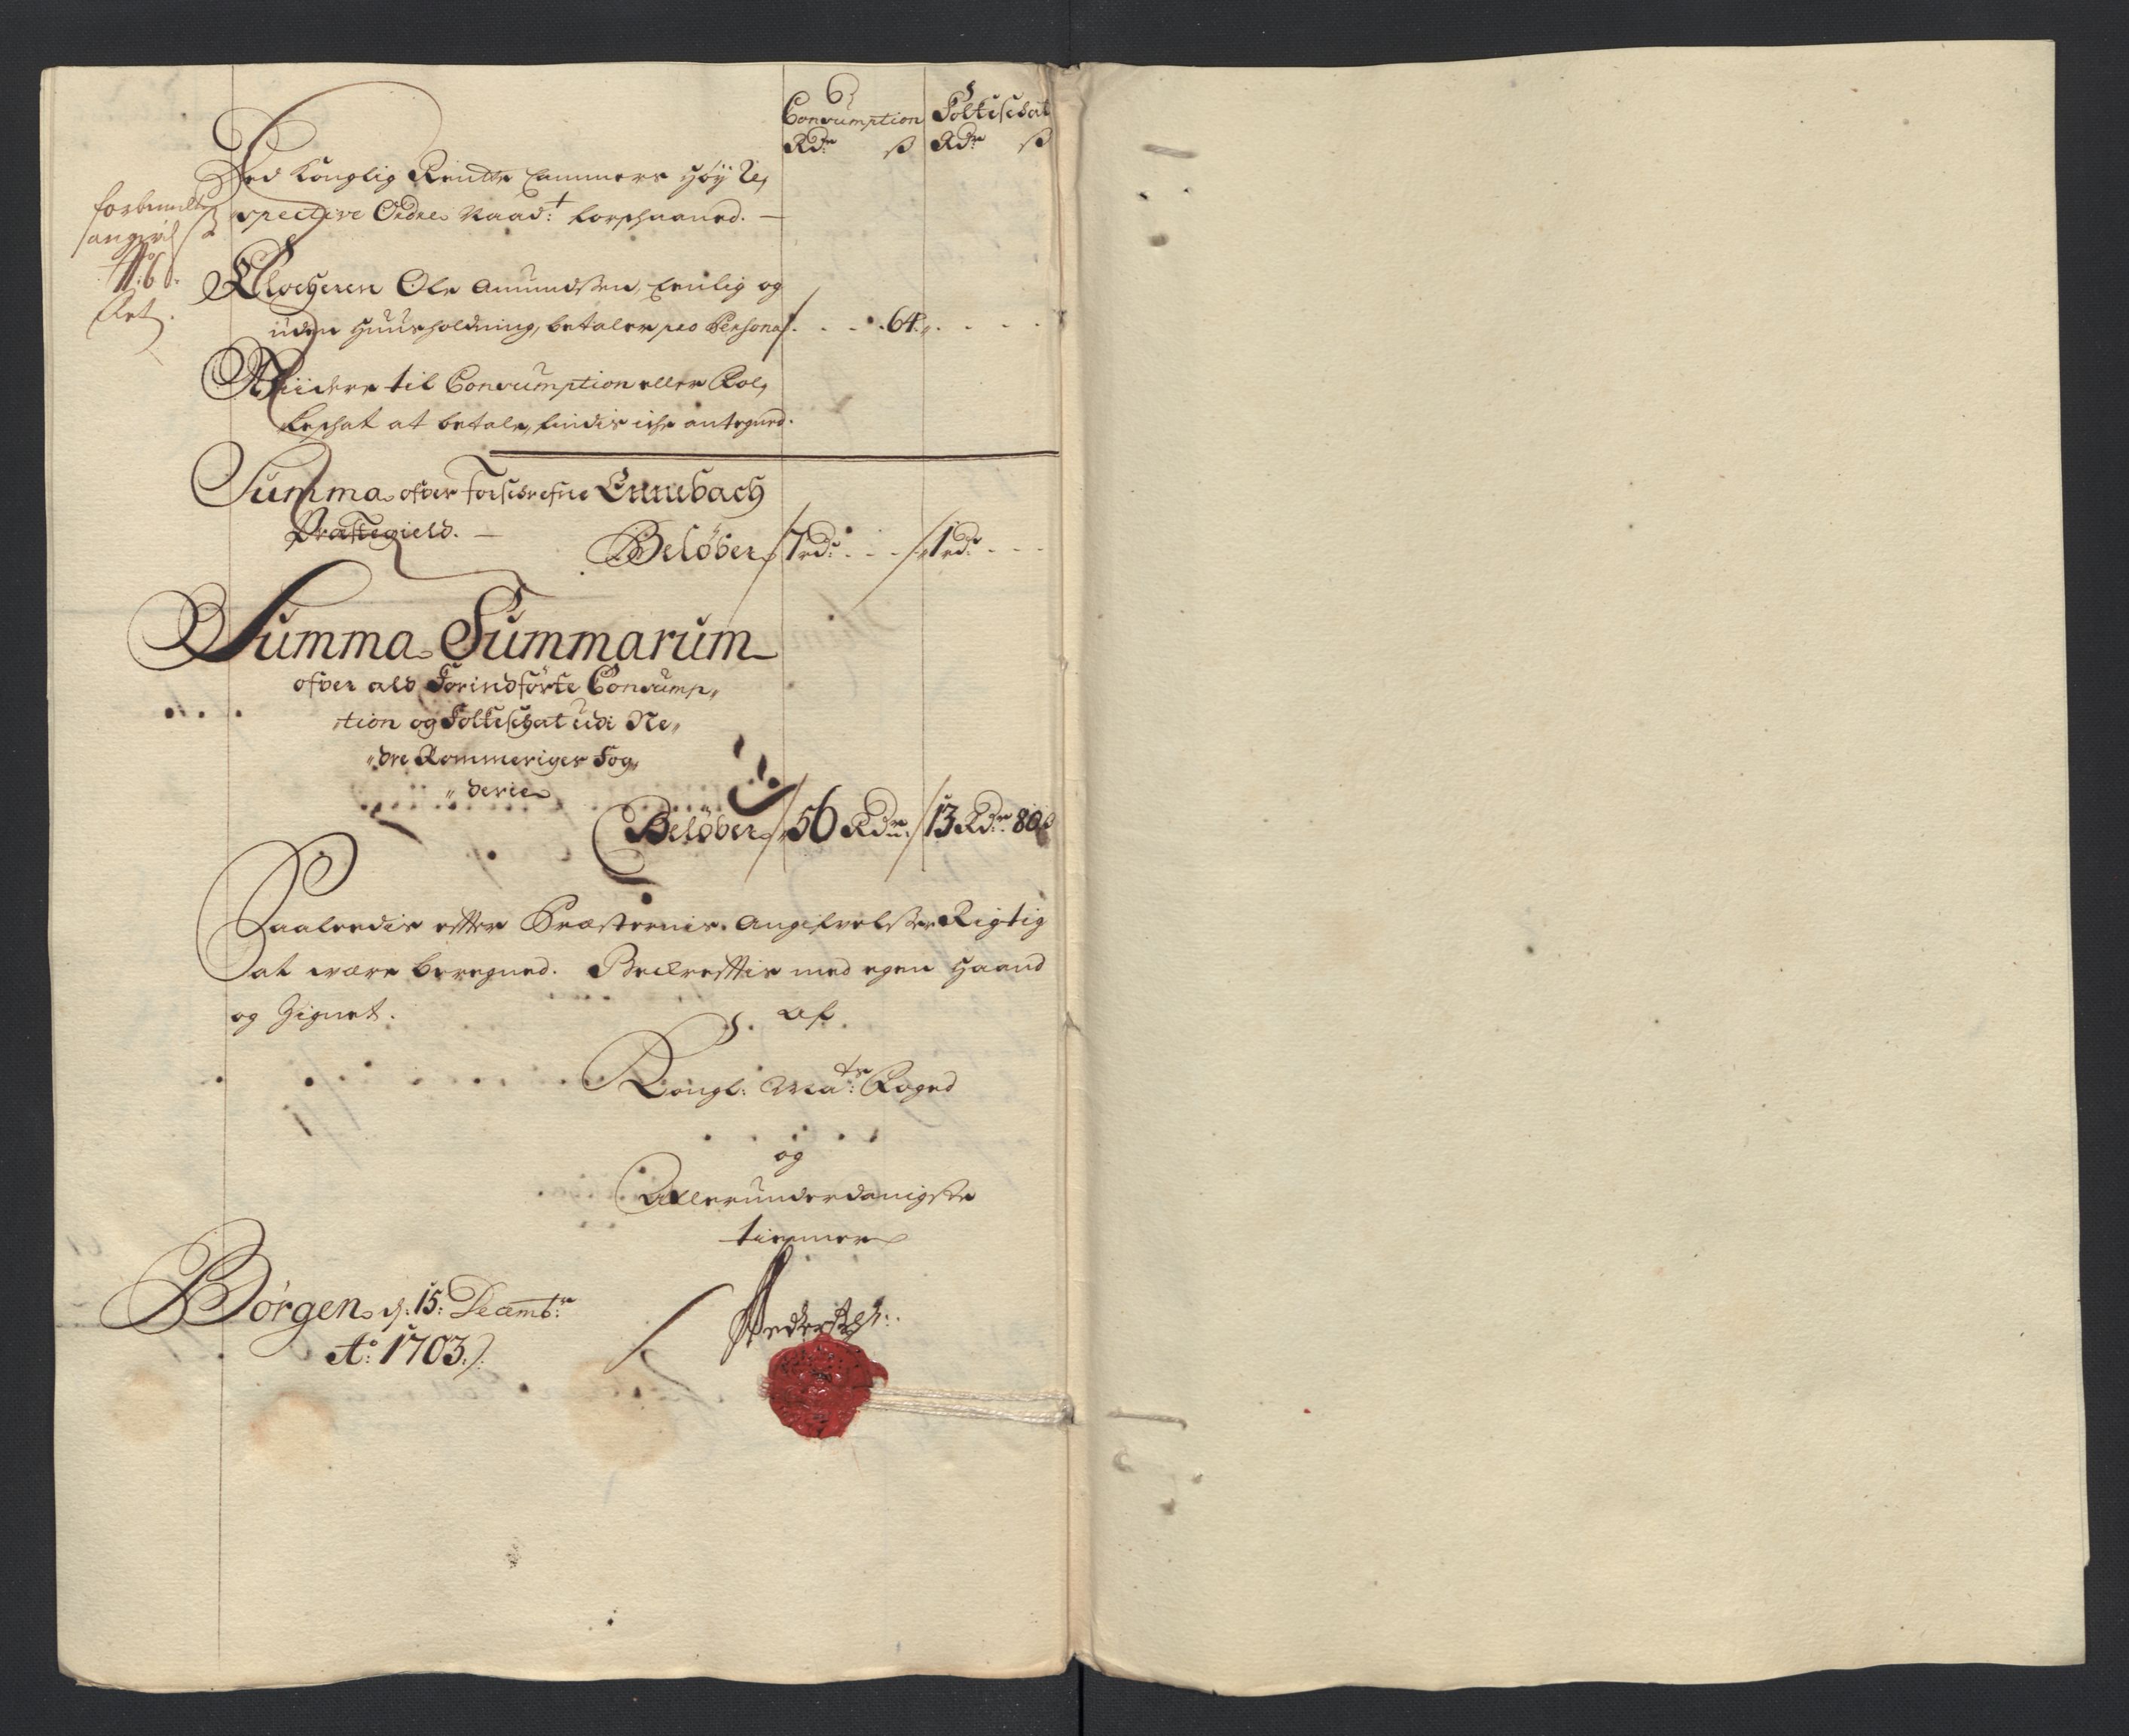 Consumption Folkeschat
Rdr ß Rdr ß
Ved Konglig Rentte Cammers Høy Re,
spective Ordre Naad:t forschaaned. —
No 6
Ret.
Klocheren Ole Amundssen, Enlig og
uden Huusholdning, betaler pro Persona . . . 64 . . . .
Viidere til Consumption eller Fol,
keschat at betale, findis iche antegned.
Summa ofver forschrefne Ennebach
Præstegield. —
Beløber 7 rdr . . . 1 rdr . . .
Summa Summarum
ofver ald Forindførte Consump„
„tion og Folkeschat udi Ne„
„dre Rommeriges Fog„
„derie
Beløber 56 Rdr: 13 Rdr: 80 ß
Saaledis efter Præsternis Angifvelsse Rigtig
at være beregned. Bekreftis med egen Haand
og Zignet. af
Kongl: Ma:ts Foged
og
Allerunderdanigste
tienner
Børgen d: 15: Decembr:
Ao: 1703.